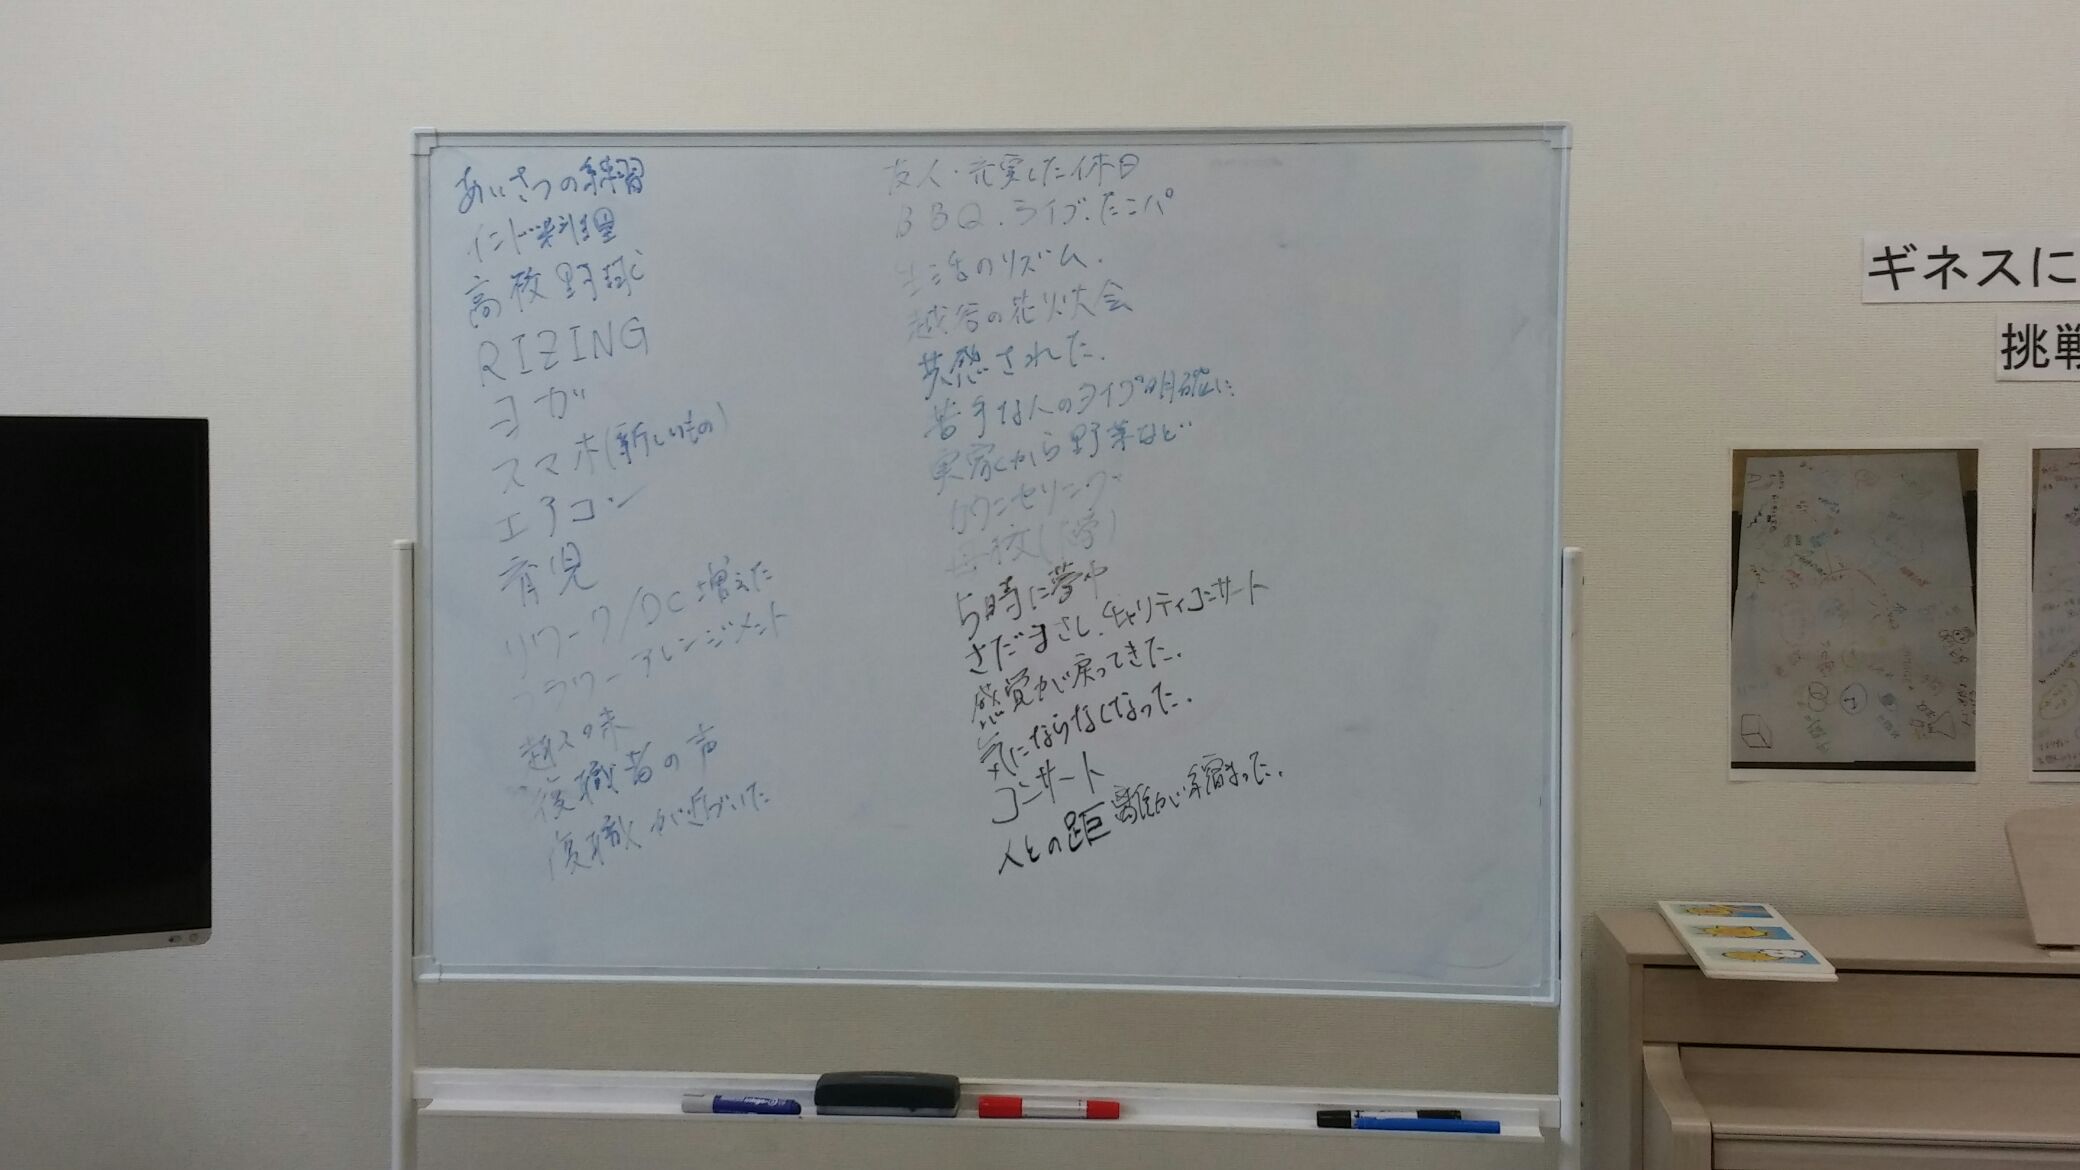 あいさつの練習
インド料理
高校野球
RIZING
ヨガ
スマホ(新しいもの)
エアコン
育児
リワーク/DC増えた
フラワーアレンジメント
越の味
復職者の声
復職が近づいた
友人・充実した休日
BBQ.ライブ.たこパ
生活のリズム.
越谷の花火大会
共感された.
苦手な人のタイプ明確に
実家から野菜など
カウンセリング
母校()
5時に夢中
さだまさし.チャリティコンサート
感覚が戻ってきた.
気にならなくなった.
コンサート
人との距離が縮まった.
ギネスに
挑戦